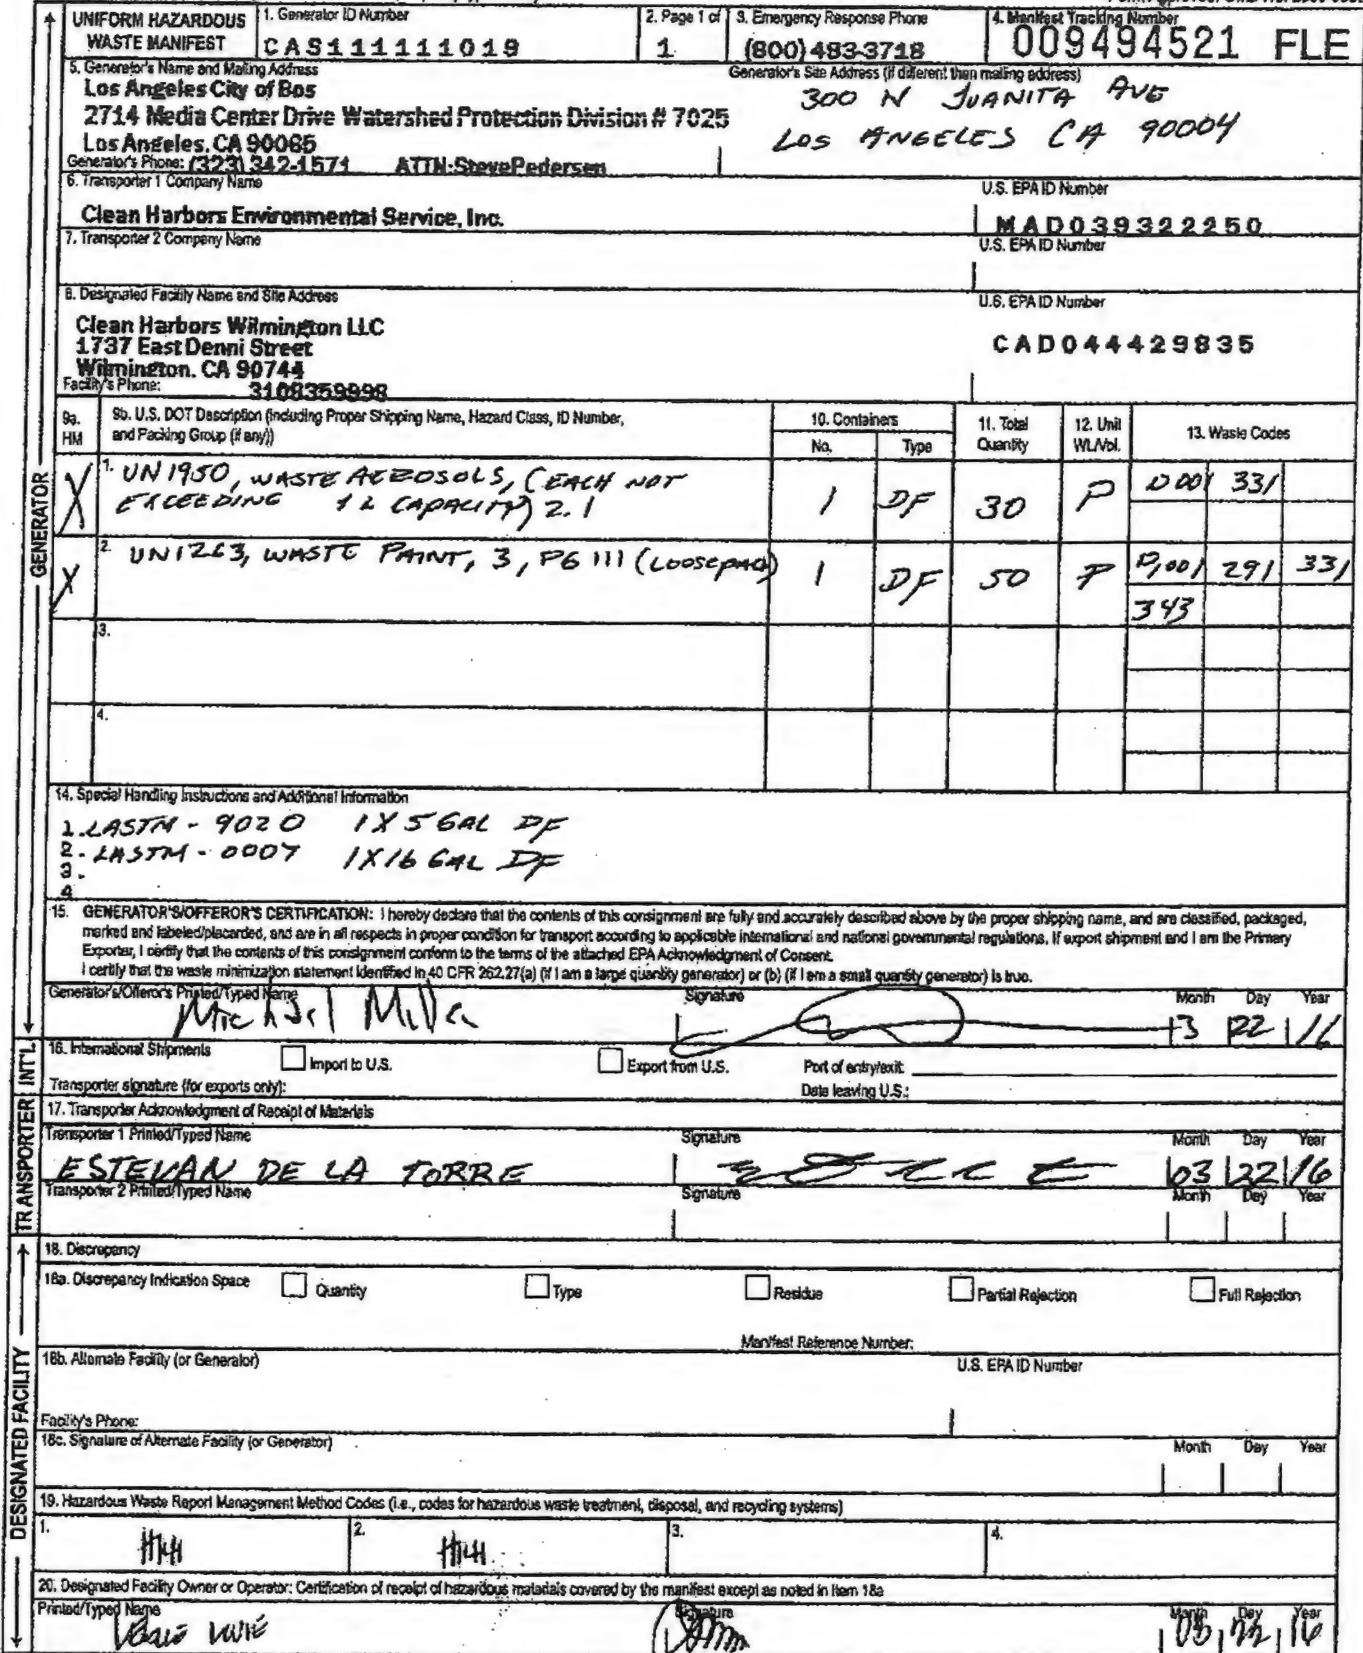 UNIFORM HAZARDOUS WASTE MANIFEST
1. Generator ID Number
CAS111111019
2. Page 1 of
1
3. Emergency Response Phone
(800)483-3718
4. Manifest Tracking Number
009494521 FLE
5. Generator's Name and Mailing Address
Los Angeles City of Bos
2714 Media Center Drive Watershed Protection Division # 7025
Los Angeles, CA 90065
Generator's Phone: (323) 342-1571 ATTN:StevePedersen
Generator's Site Address (if different than mailing address)
300 N JUANITA AVE
LOS ANGELES CA 90004
6. Transporter 1 Company Name
Clean Harbors Environmental Service, Inc.
U.S. EPA ID Number
MAD039322250
7. Transporter 2 Company Name
U.S. EPA ID Number
8. Designated Facility Name and Site Address
Clean Harbors Wilmington LLC
1737 East Denni Street
Wilmington, CA 90744
Facility's Phone: 3108359998
U.S. EPA ID Number
CAD044429835
9a. HM
9b. U.S. DOT Description (including Proper Shipping Name, Hazard Class, ID Number, and Packing Group (if any))
10. Containers
No. Type
11. Total Quantity
12. Unit Wt./Vol.
13. Waste Codes
X 1. UN1950, WASTE AEROSOLS, (EACH NOT EXCEEDING 1 L CAPACITY) 2.1 1 DF 30 P D001 331
X 2. UN1263, WASTE PAINT, 3, PG III (LOOSEPACK) 1 DF 50 P D001 291 331
343
3.
4.
14. Special Handling Instructions and Additional Information
1. LASTM - 9020 1X5 GAL DF
2. LASTM - 0007 1X16 GAL DF
3.
4
15. GENERATOR'S/OFFEROR'S CERTIFICATION: I hereby declare that the contents of this consignment are fully and accurately described above by the proper shipping name, and are classified, packaged,
marked and labeled/placarded, and are in all respects in proper condition for transport according to applicable international and national governmental regulations. If export shipment and I am the Primary
Exporter, I certify that the contents of this consignment conform to the terms of the attached EPA Acknowledgment of Consent.
I certify that the waste minimization statement identified in 40 CFR 262.27(a) (if I am a large quantity generator) or (b) (if I am a small quantity generator) is true.
Generator's/Offeror's Printed/Typed Name
Signature
Month Day Year
Michael Miller
3 22 16
16. International Shipments
Import to U.S.
Export from U.S.
Port of entry/exit:
Transporter signature (for exports only):
Date leaving U.S.:
17. Transporter Acknowledgment of Receipt of Materials
Transporter 1 Printed/Typed Name
Signature
Month Day Year
ESTEVAN DE LA TORRE
03 22 16
Transporter 2 Printed/Typed Name
Signature
Month Day Year
18. Discrepancy
18a. Discrepancy Indication Space
Quantity
Type
Residue
Partial Rejection
Full Rejection
Manifest Reference Number:
18b. Alternate Facility (or Generator)
U.S. EPA ID Number
Facility's Phone:
18c. Signature of Alternate Facility (or Generator)
Month Day Year
19. Hazardous Waste Report Management Method Codes (i.e., codes for hazardous waste treatment, disposal, and recycling systems)
1. H141
2. H141
3.
4.
20. Designated Facility Owner or Operator: Certification of receipt of hazardous materials covered by the manifest except as noted in Item 18a
Printed/Typed Name
Signature
Month Day Year
03 22 16
GENERATOR
INT'L
TRANSPORTER
DESIGNATED FACILITY